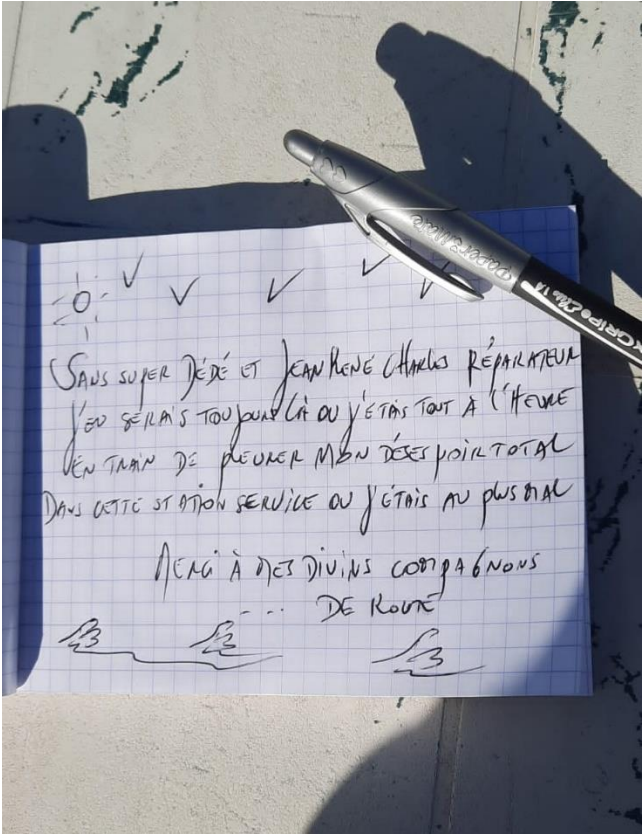 SANS SUPER DÉDÉ ET JEAN RENÉ CHARLES RÉPARATEUR
J'EN SERAIS TOUJOURS LÀ OU J'ÉTAIS TOUT À L'HEURE
EN TRAIN DE PLEURER MON DÉSESPOIR TOTAL
DANS CETTE STATION SERVICE OU J'ÉTAIS AU PLUS MAL
MERCI À MES DIVINS COMPAGNONS
.... DE ROUTE
Paper Mate
GRIP